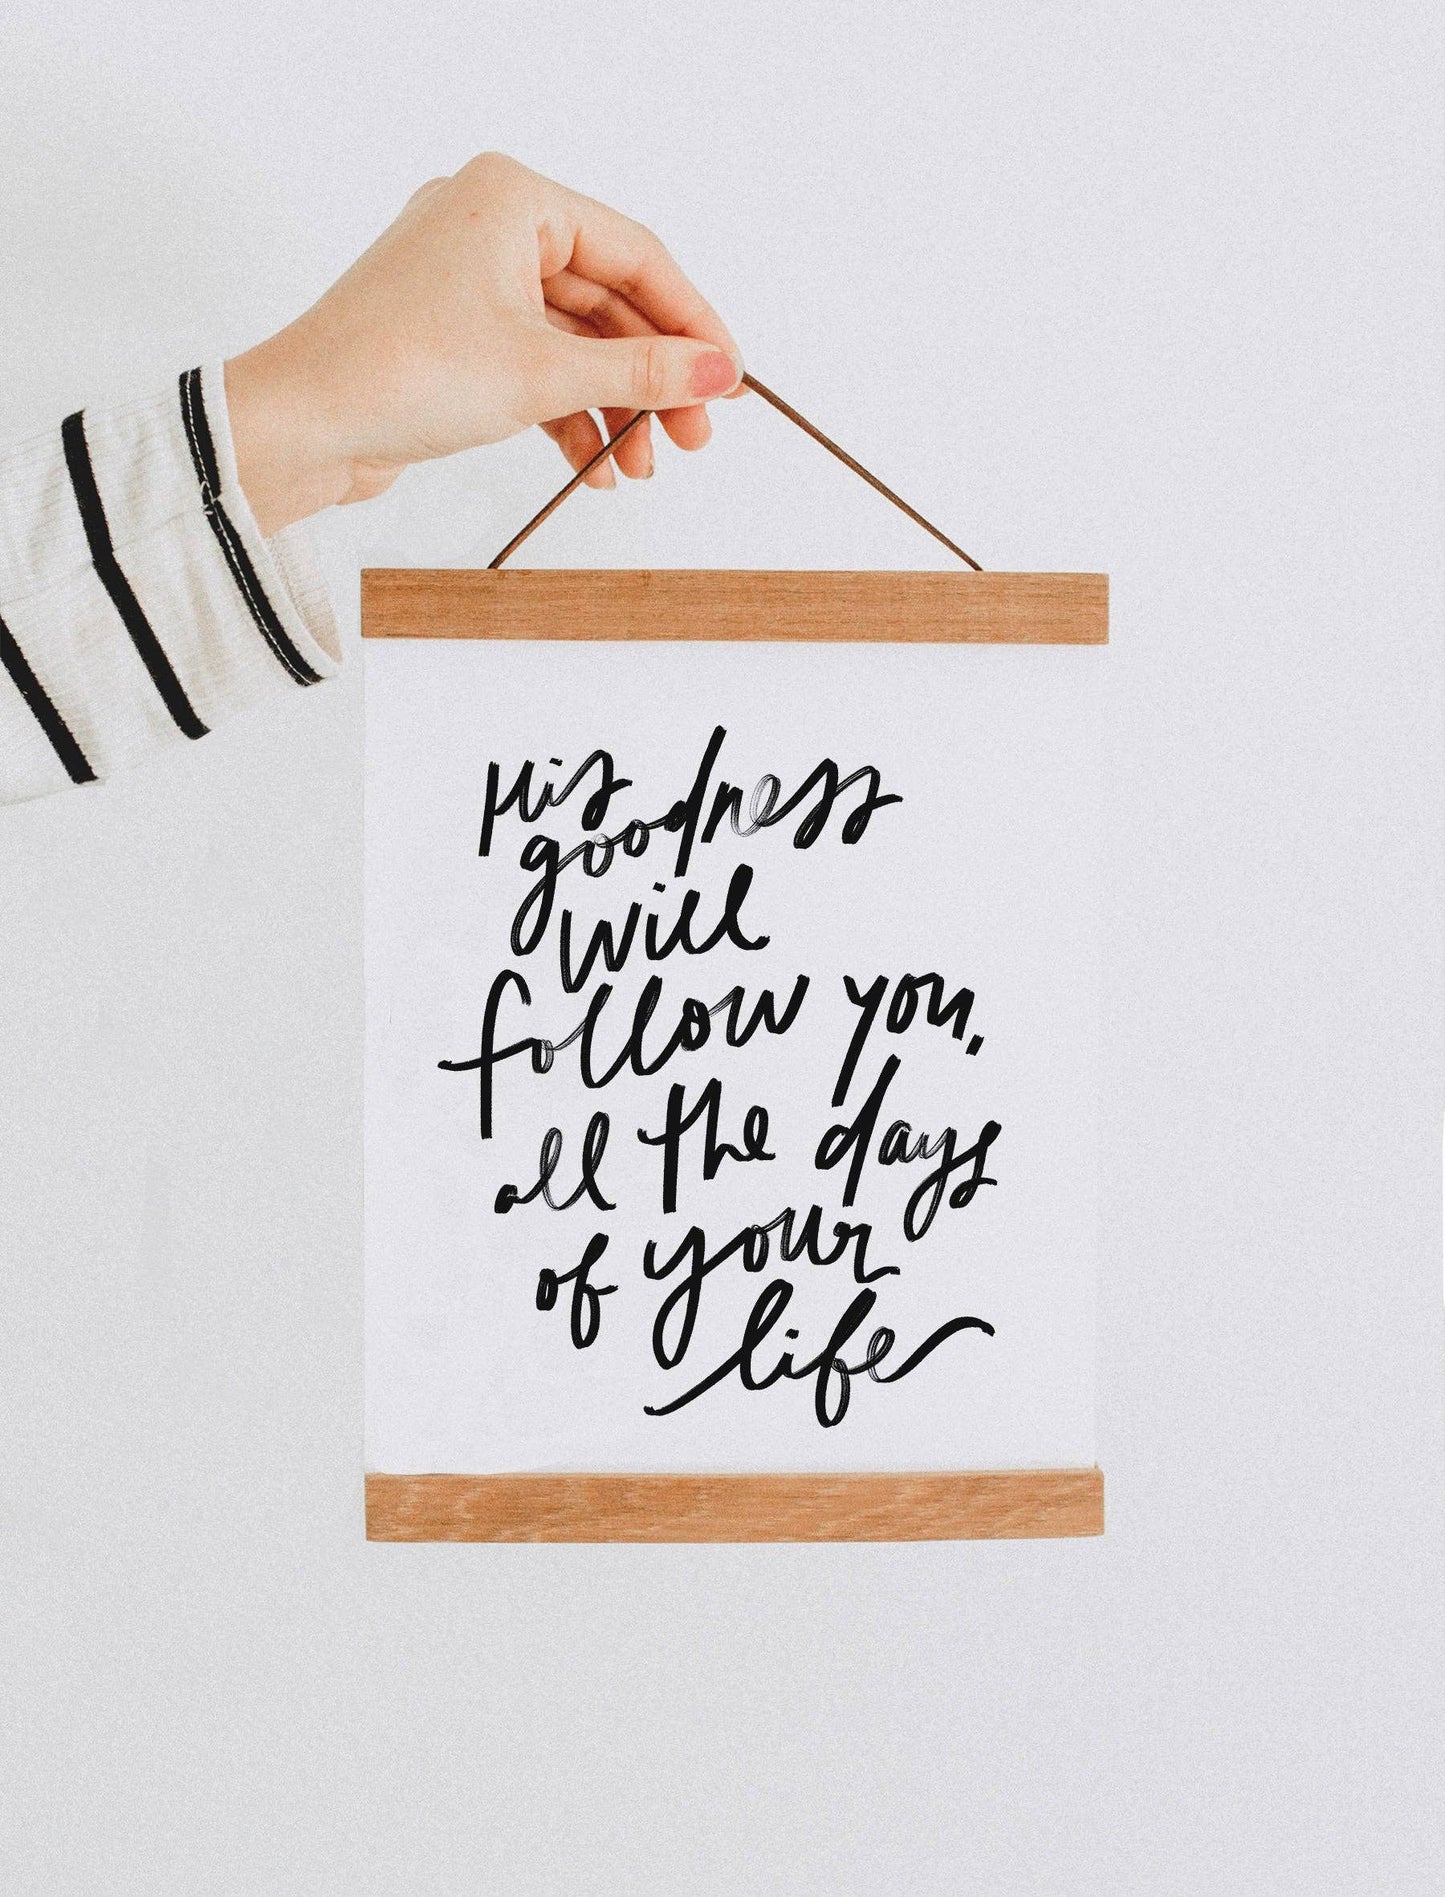 His
goodness
will
follow you,
all the days
of your
life